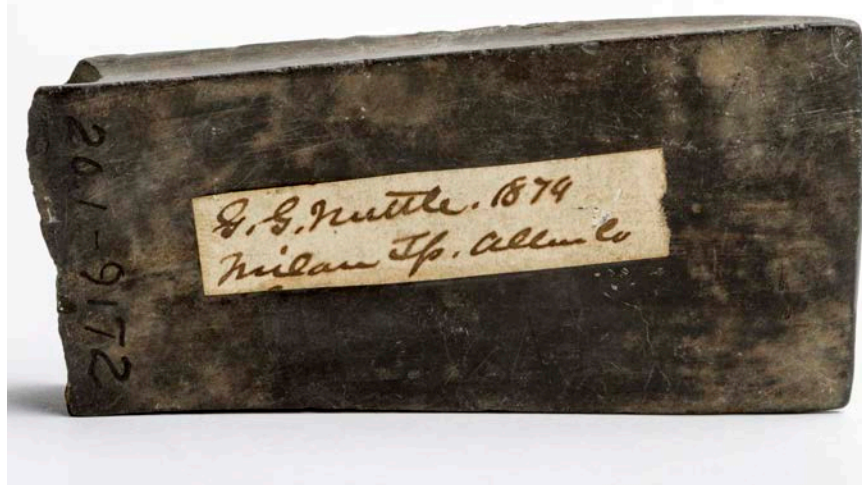 201-9172
G. G. Nuttle. 1879
Milan Tp. Allen Co